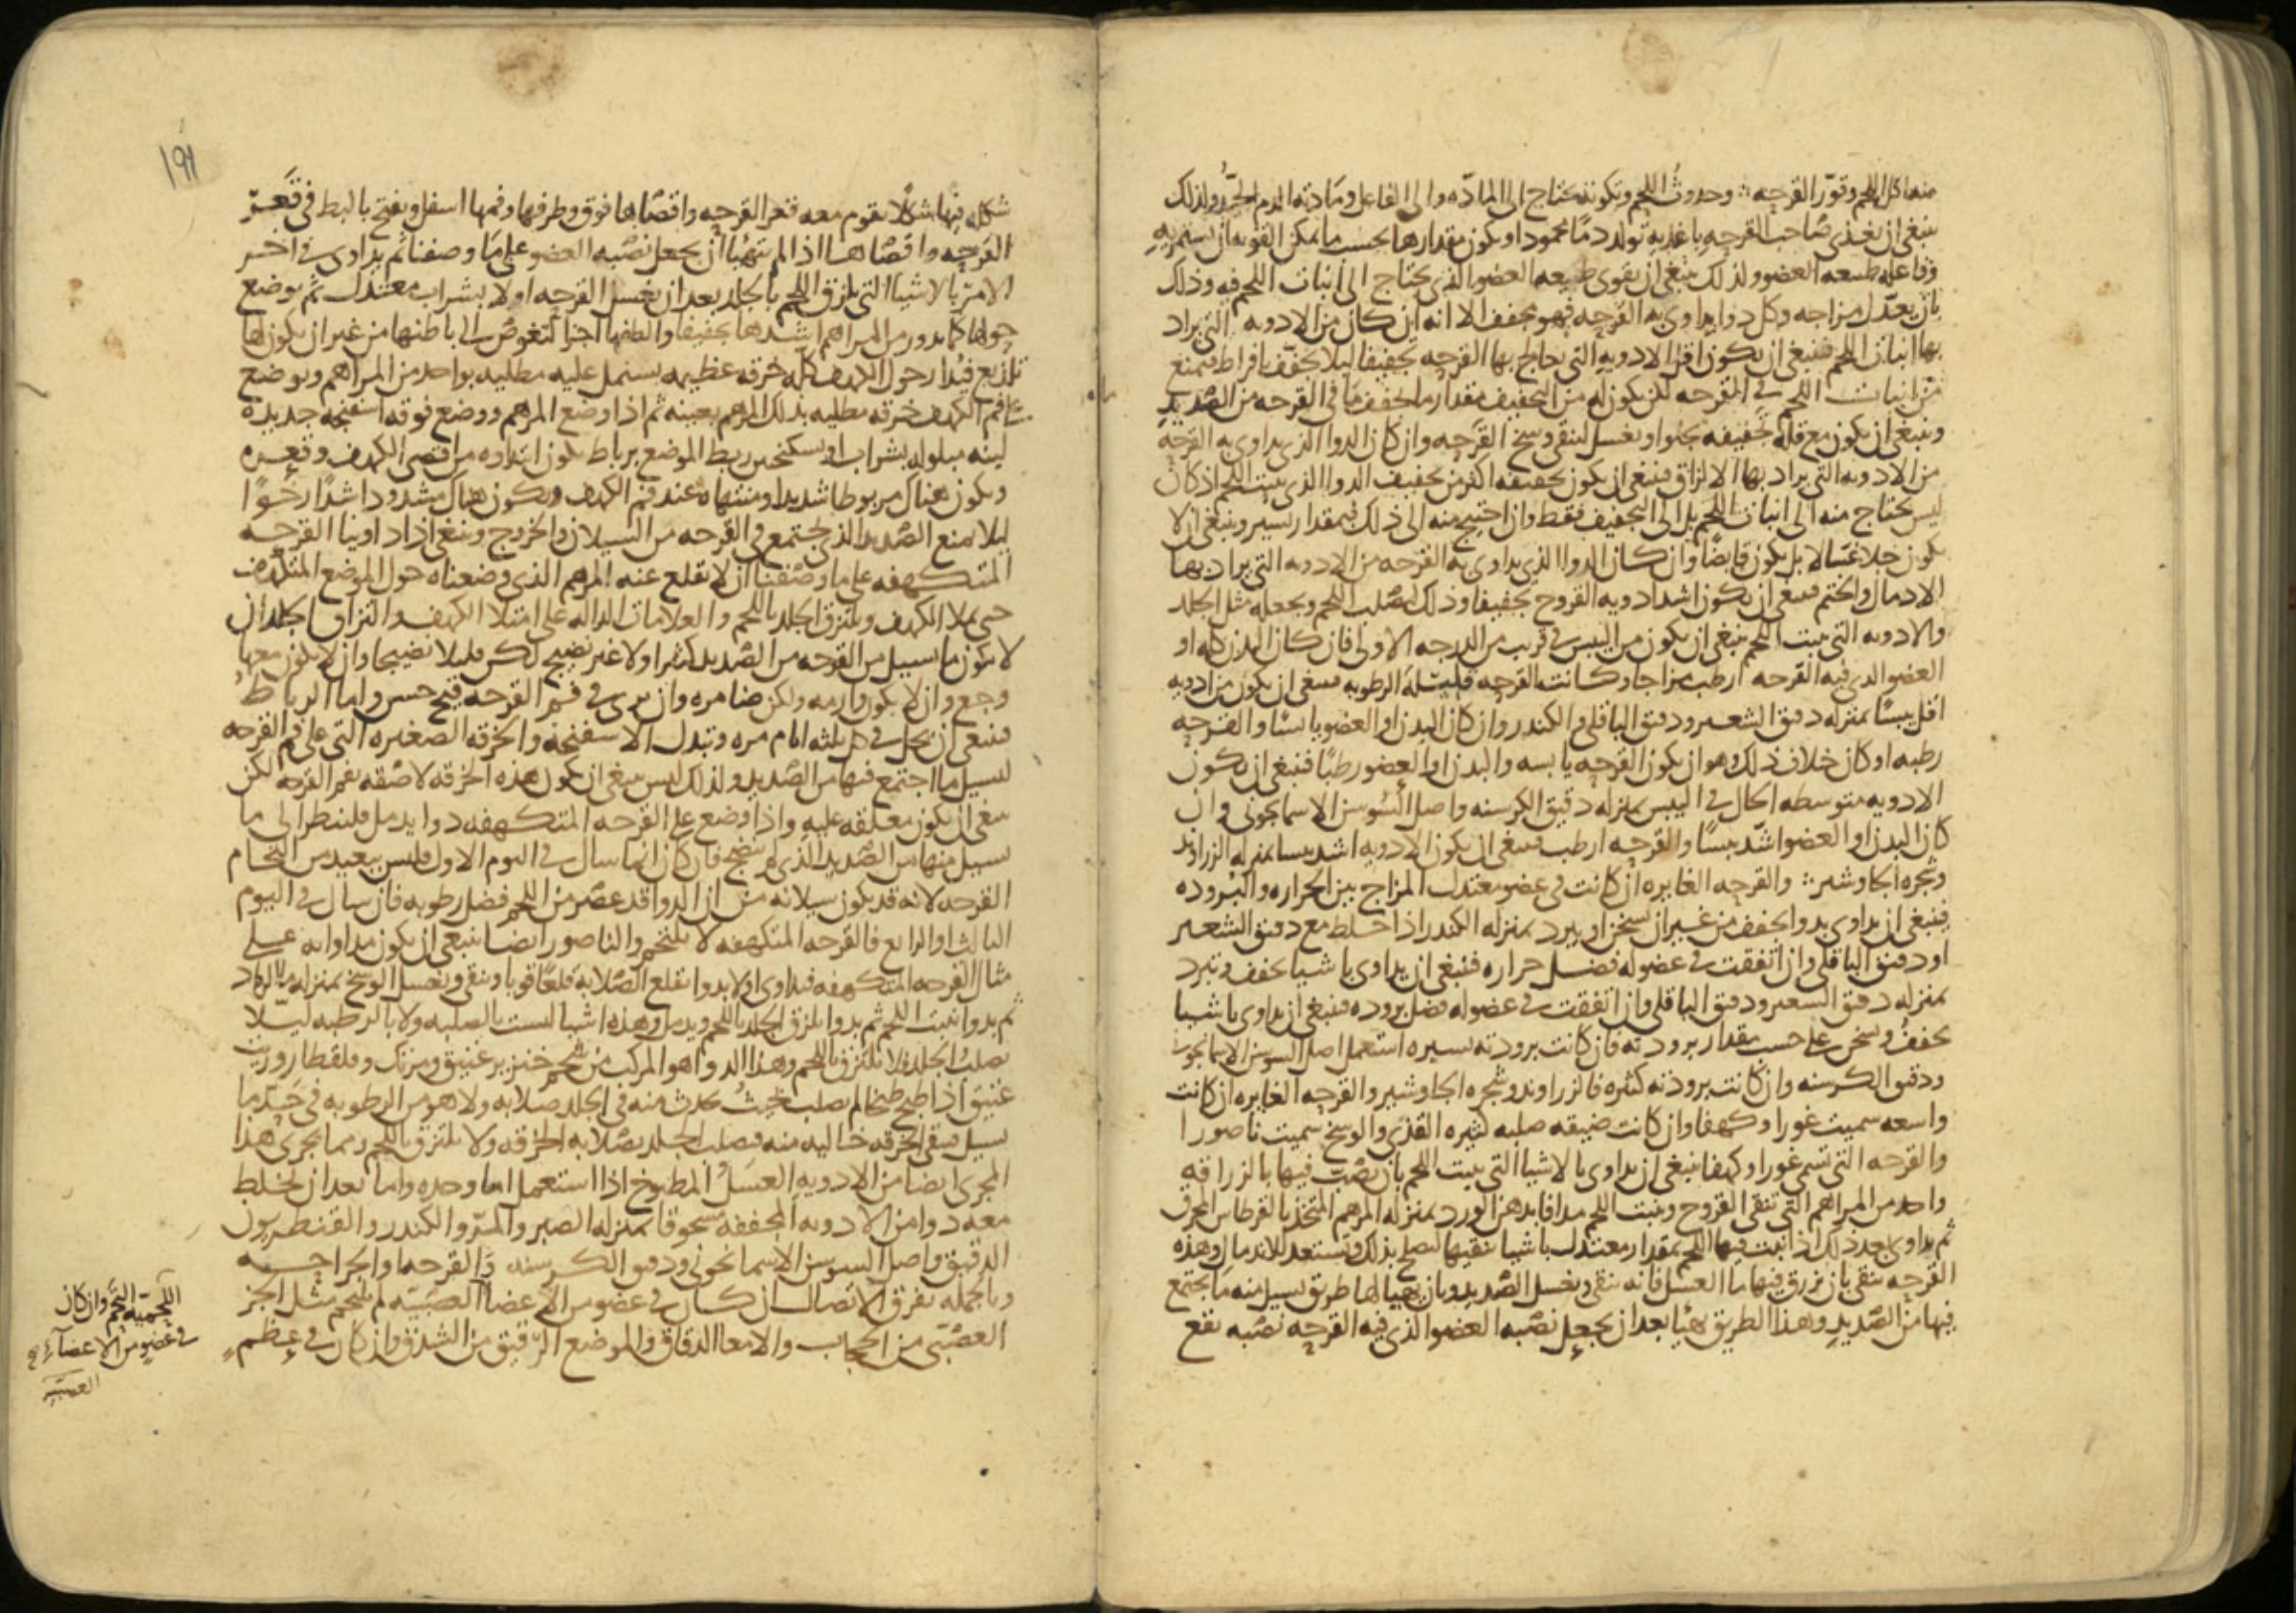 منه اكل اللحم وقور القرحه ∴ وحدوث اللحم وتكونه يحتاج الى الماده والى الفاعل ومادته الدم الجيد ولذلك
ينبغى ان يغذى صاحب القرحه باغذيه تولد دما محمودا ويكون مقدارها بحسب ما يمكن القوه ان تستمريه
وفاعله طبيعه العضو ولذلك ينبغى ان يقوى طبيعه العضو الذى يحتاج الى انبات اللحم فيه وذلك
بان يعدل مزاجه وكل دوا يداوى به القرحه فهو مجفف الا انه ان كان من الادويه التى يراد
بها انبات اللحم فينبغى ان يكون اقل الادويه التى يعالج بها القرحه تجفيفا ليلا يجفف بافراط فيمنع
من انبات اللحم فى القرحه لكن يكون له من التجفيف مقدار ما يجفف ما فى القرحه من الصديد
وينبغى ان يكون مع قله تجفيفه يجلو ويغسل لينقى وسخ القرحه وان كان الدوا الذى يداوى به القرحه
من الادويه التى يراد بها الالزاق فينبغى ان يكون تجفيفه اكثر من تجفيف الدوا الذى ينبت اللحم اذ كان
ليس يحتاج منه الى انبات اللحم بل الى التجفيف فقط وان احتيج منه الى ذلك فبمقدار يسير وينبغى ان لا
يكون جلا غسالا بل يكون قابضا وان كان الدوا الذى يداوى به القرحه من الادويه التى يراد بها
الادمال والختم فينبغى ان يكون اشد ادويه القروح تجفيفا وذلك ليصلب اللحم ويجعله مثل الجلد
والادويه التى ينبت اللحم ينبغى ان يكون من اليبس فى قريب من الدرجه الاولى فان كان البدن كله او
العضو الذى فيه القرحه ارطب مزاجا وكانت القرحه قليله الرطوبه فينبغى ان يكون من ادويه
اقل يبسا بمنزله دقيق الشعير ودقيق الباقلى والكندر وان كان البدن او العضو يابسا والقرحه
رطبه او كان خلاف ذلك وهو ان يكون القرحه يابسه والبدن او العضو رطبا فينبغى ان يكون
الادويه متوسطه الحال فى اليبس بمنزله دقيق الكرسنه واصل السوسن الاسمانجونى وان
كان البدن او العضو اشد يبسا والقرحه ارطب فينبغى ان يكون الادويه اشد يبسا بمنزله الزراوند
وشجره الجاوشير ∴ والقرحه الغايره ان كانت فى عضو معتدل المزاج بين الحراره والبروده
فينبغى ان يداوى بدوا يجفف من غير ان يسخن او يبرد بمنزله الكندر اذا خلط مع دقيق الشعير
او دقيق الباقلى وان اتفقت فى عضو له فضل حراره فينبغى ان يداوى باشيا يجفف ويبرد
بمنزله دقيق الشعير ودقيق الباقلى وان اتفقت فى عضو له فضل بروده فينبغى ان يداوى باشيا
يجفف ويسخن على حسب مقدار برودته فان كانت برودته يسيره استعمل اصل السوسن الاسمانجونى
ودقيق الكرسنه وان كانت برودته كثيره فالزراوند وشجره الجاوشير والقرحه الغايره ان كانت
واسعه سميت غورا وكهفا وان كانت ضيقه صلبه كثيره القذى والوسخ سميت ناصورا
والقرحه التى تسمى غورا وكهفا ينبغى ان يداوى بالاشيا التى ينبت اللحم بان يصب فيها بالزراقه
واحد من المراهم التى تنقى القروح وينبت اللحم مدافا بدهن الورد بمنزله المرهم المتخذ بالقرطاس المحرق
ثم يداوى بعد ذلك اذا نبت فيها اللحم بمقدار معتدل باشيا تنقيها لتصلح بذلك وتستعد للاندمال وهذه
القرحه تنقى بان يزرق فيها ما العسل فانه ينقى ويغسل الصديد وبان يهيا لها طريق يسيل منه ما يجتمع
فيها من الصديد وهذا الطريق يهيا بعد ان يجعل نصبه العضو الذى فيه القرحه نصبه تقع
١٩١
شكله فيها شكلا يقوم معه قعر القرحه واقصاها فوق وطرفها وفمها اسفل ويفتح بالبط فى قعر
القرحه واقصاها اذا لم يتهيا ان يجعل نصبه العضو على ما وصفنا ثم يداوى فى اخر
الامر بالاشيا التى يلزق اللحم بالجلد بعد ان يغسل القرحه اولا بشراب معتدل ثم يوضع
حولها كما يدور من المراهم اشدها تجفيفا والطفها اجزا لتغوص الى باطنها من غير ان يكون لها
تلذيع فيدار حول الكهف كله خرقه عظيمه يستمل عليه مطليه بواحد من المراهم ويوضع
على فم الكهف خرقه مطليه بذلك المرهم بعينه ثم اذا وضع المرهم ووضع فوقه اسفنجه جديده
لينه مبلوله بشراب او سكنجبين ربط الموضع برباط يكون ابتداوه من اقصى الكهف وقعره
ويكون هناك مربوطا شديدا ومنتهاه عند فم الكهف ويكون هناك مشدودا شدا رخوا
ليلا يمنع الصديد الذى يجتمع فى القرحه من السيلان والخروج وينبغى اذا داوينا القرحه
المتكهفه على ما وصفنا ان لا يقلع عنه المرهم الذى وضعناه حول الموضع المتكهف
حتى يملا الكهف ويلتزق الجلد باللحم والعلامات الداله على امتلا الكهف والتزاق الجلد ان
لا يكون ما يسيل من القرحه من الصديد كثيرا ولا غير نضيج لكن قليلا نضيجا وان لا يكون معها
وجع وان لا يكون وارمه ولكن ضامره وان يرى فى فم القرحه قيح حسن واما الرباط
فينبغى ان يحل فى كل ثلثه ايام مره وتبدل الاسفنجه والخرقه الصغيره التى على فم القرحه
ليسيل ما اجتمع فيها من الصديد ولذلك ليس ينبغى ان يكون هذه الخرقه لاصقه بفم القرحه لكن
ينبغى ان يكون معلقه عليه واذا وضع على القرحه المتكهفه دوا يدمل فلينظر الى ما
يسيل منها من الصديد الذى لم ينضج فان كان انما سال فى اليوم الاول فليس ببعيد من التحام
القرحه لانه قد يكون سيلانه من ان الدوا قد عصر من اللحم فضل رطوبه فان سال فى اليوم
الثالث او الرابع فالقرحه المتكهفه لا يلتحم والناصور ايضا ينبغى ان يكون مداواته على
مثال القرحه المتكهفه فيداوى اولا بدوا يقلع الصلابه قلعا قويا وينقى ويغسل الوسخ بمنزله ما الرماد
ثم بدوا ينبت اللحم ثم بدوا يلزق الجلد باللحم ويدمل وهذه اشيا ليست بالصلبه ولا بالرطبه ليلا
يصلب الجلد فلا يلتزق باللحم وهذا الدوا هو المركب من شحم خنزير عتيق ومرتك وقلقطار وزيت
عتيق اذا طبخ طبخا لم يصلب بحيث يحدث منه فى الجلد صلابه ولا هو من الرطوبه فى حد ما
يسيل فيبقى الخرقه خاليه منه فيصلب الجلد بصلابه الخرقه ولا يلتزق باللحم ومما يجرى هذا
المجرى ايضا من الادويه العسل المطبوخ اذا استعمل اما وحده واما بعد ان يخلط
معه دوا من الادويه المجففه مسحوقا بمنزله الصبر والمر والكندر والقنطريون
الدقيق واصل السوسن الاسمانجونى ودقيق الكرسنه والقرحه والجراحه
وبالجمله تفرق الاتصال ان كان فى عضو من الاعضا العصبيه لم يلتحم مثل الجز
العصبى من الحجاب والامعا الدقاق والموضع الرقيق من الشدق وان كان فى عظم
اللحميه التحم وان كان
فى عضو من الاعضآء
العصبيه